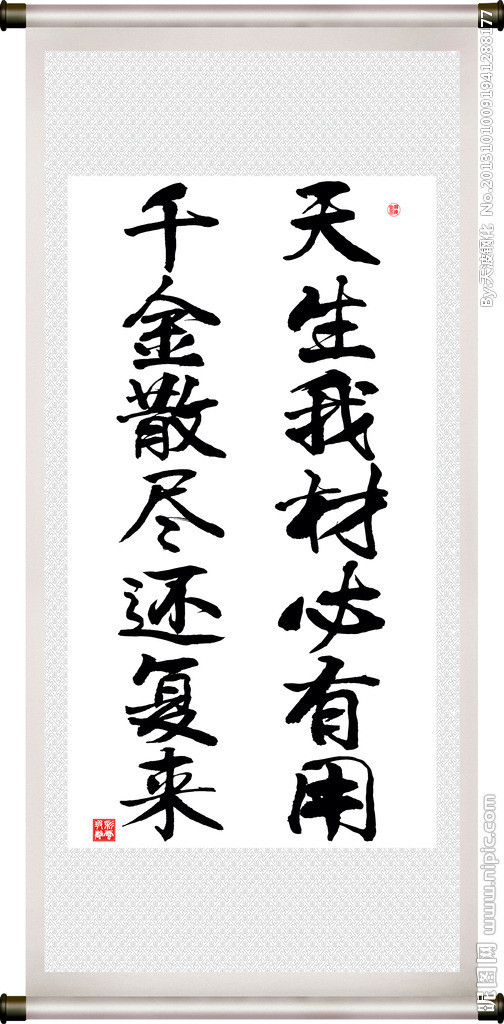 天生我材必有用
千金散尽还复来
By:天波钢化 No.20131010091941288177
昵图网 www.nipic.com